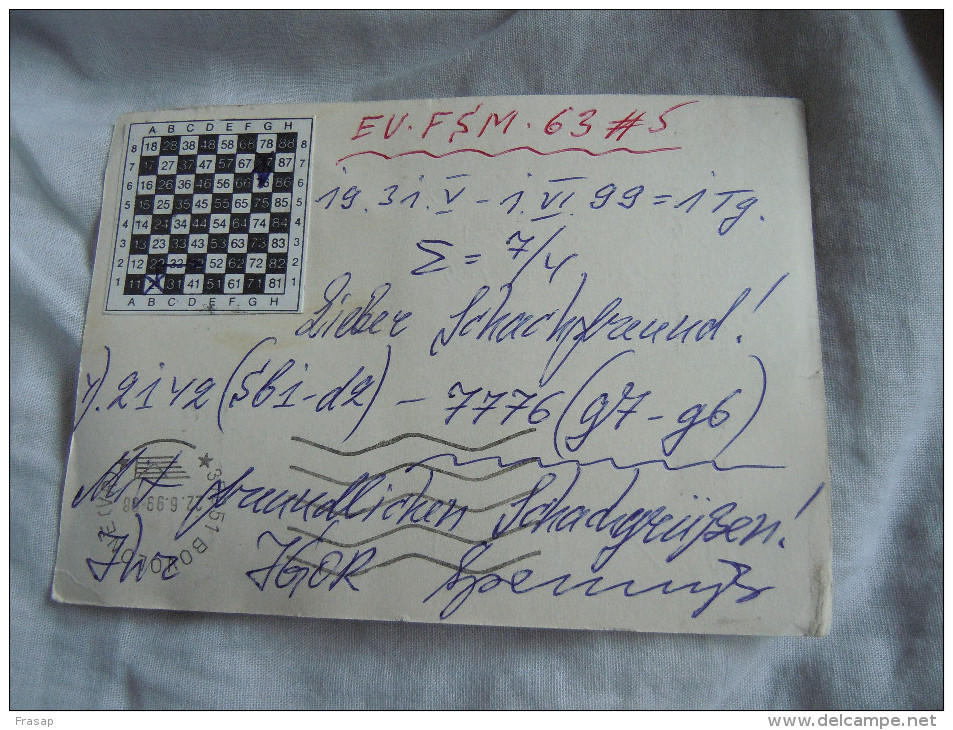 EV. FŠM. 63 #5.
A B C D E F G H
8 18 28 38 48 58 68 78 88 8
7 17 27 37 47 57 67 87 7
6 16 26 36 46 56 66 86 6
5 15 25 35 45 55 65 75 85 5
4 14 24 34 44 54 64 74 84 4
3 13 23 33 43 53 63 73 83 3
2 12 22 32 52 62 72 82 2
1 11 31 41 51 61 71 81 1
A B C D E F G H
ig. 31. V - 1. VI. 99 = 1 Tg.
Σ = 7/4
Lieber Schachfreund!
4). 2142 (Šb1-d2) - 7776 (g7-g6)
Mit freundlichen Schachgrüßen!
Ihr IGOR
22.6.99-08
Frasap
www.delcampe.net